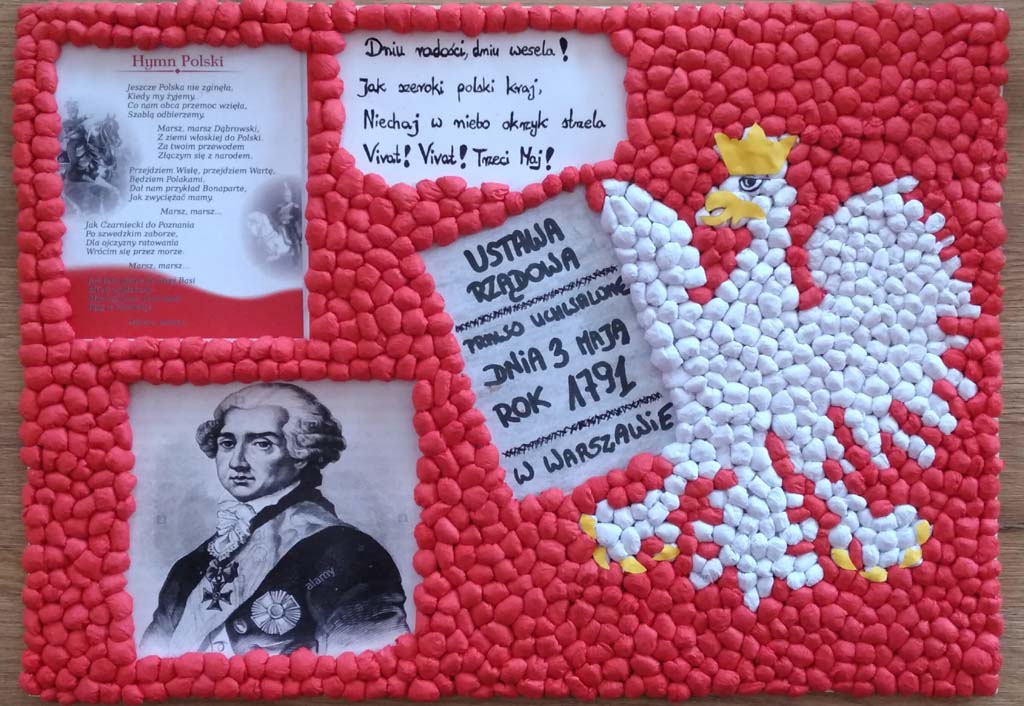 Hymn Polski
Jeszcze Polska nie zginęła,
Kiedy my żyjemy.
Co nam obca przemoc wzięła,
Szablą odbierzemy.
Marsz, marsz Dąbrowski,
Z ziemi włoskiej do Polski.
Za twoim przewodem
Złączym się z narodem.
Przejdziem Wisłę, przejdziem Wartę,
Będziem Polakami.
Dał nam przykład Bonaparte,
Jak zwyciężać mamy.
Marsz, marsz...
Jak Czarniecki do Poznania
Po szwedzkim zaborze,
Dla ojczyzny ratowania
Wrócim się przez morze.
Marsz, marsz...
Dniu radości, dniu wesela!
Jak szeroki polski kraj,
Niechaj w niebo okrzyk strzela
Vivat! Vivat! Trzeci Maj!
USTAWA
RZĄDOWA
PRAWO UCHWALONE
DNIA 3 MAJA
ROK 1791
W WARSZAWIE
alamy